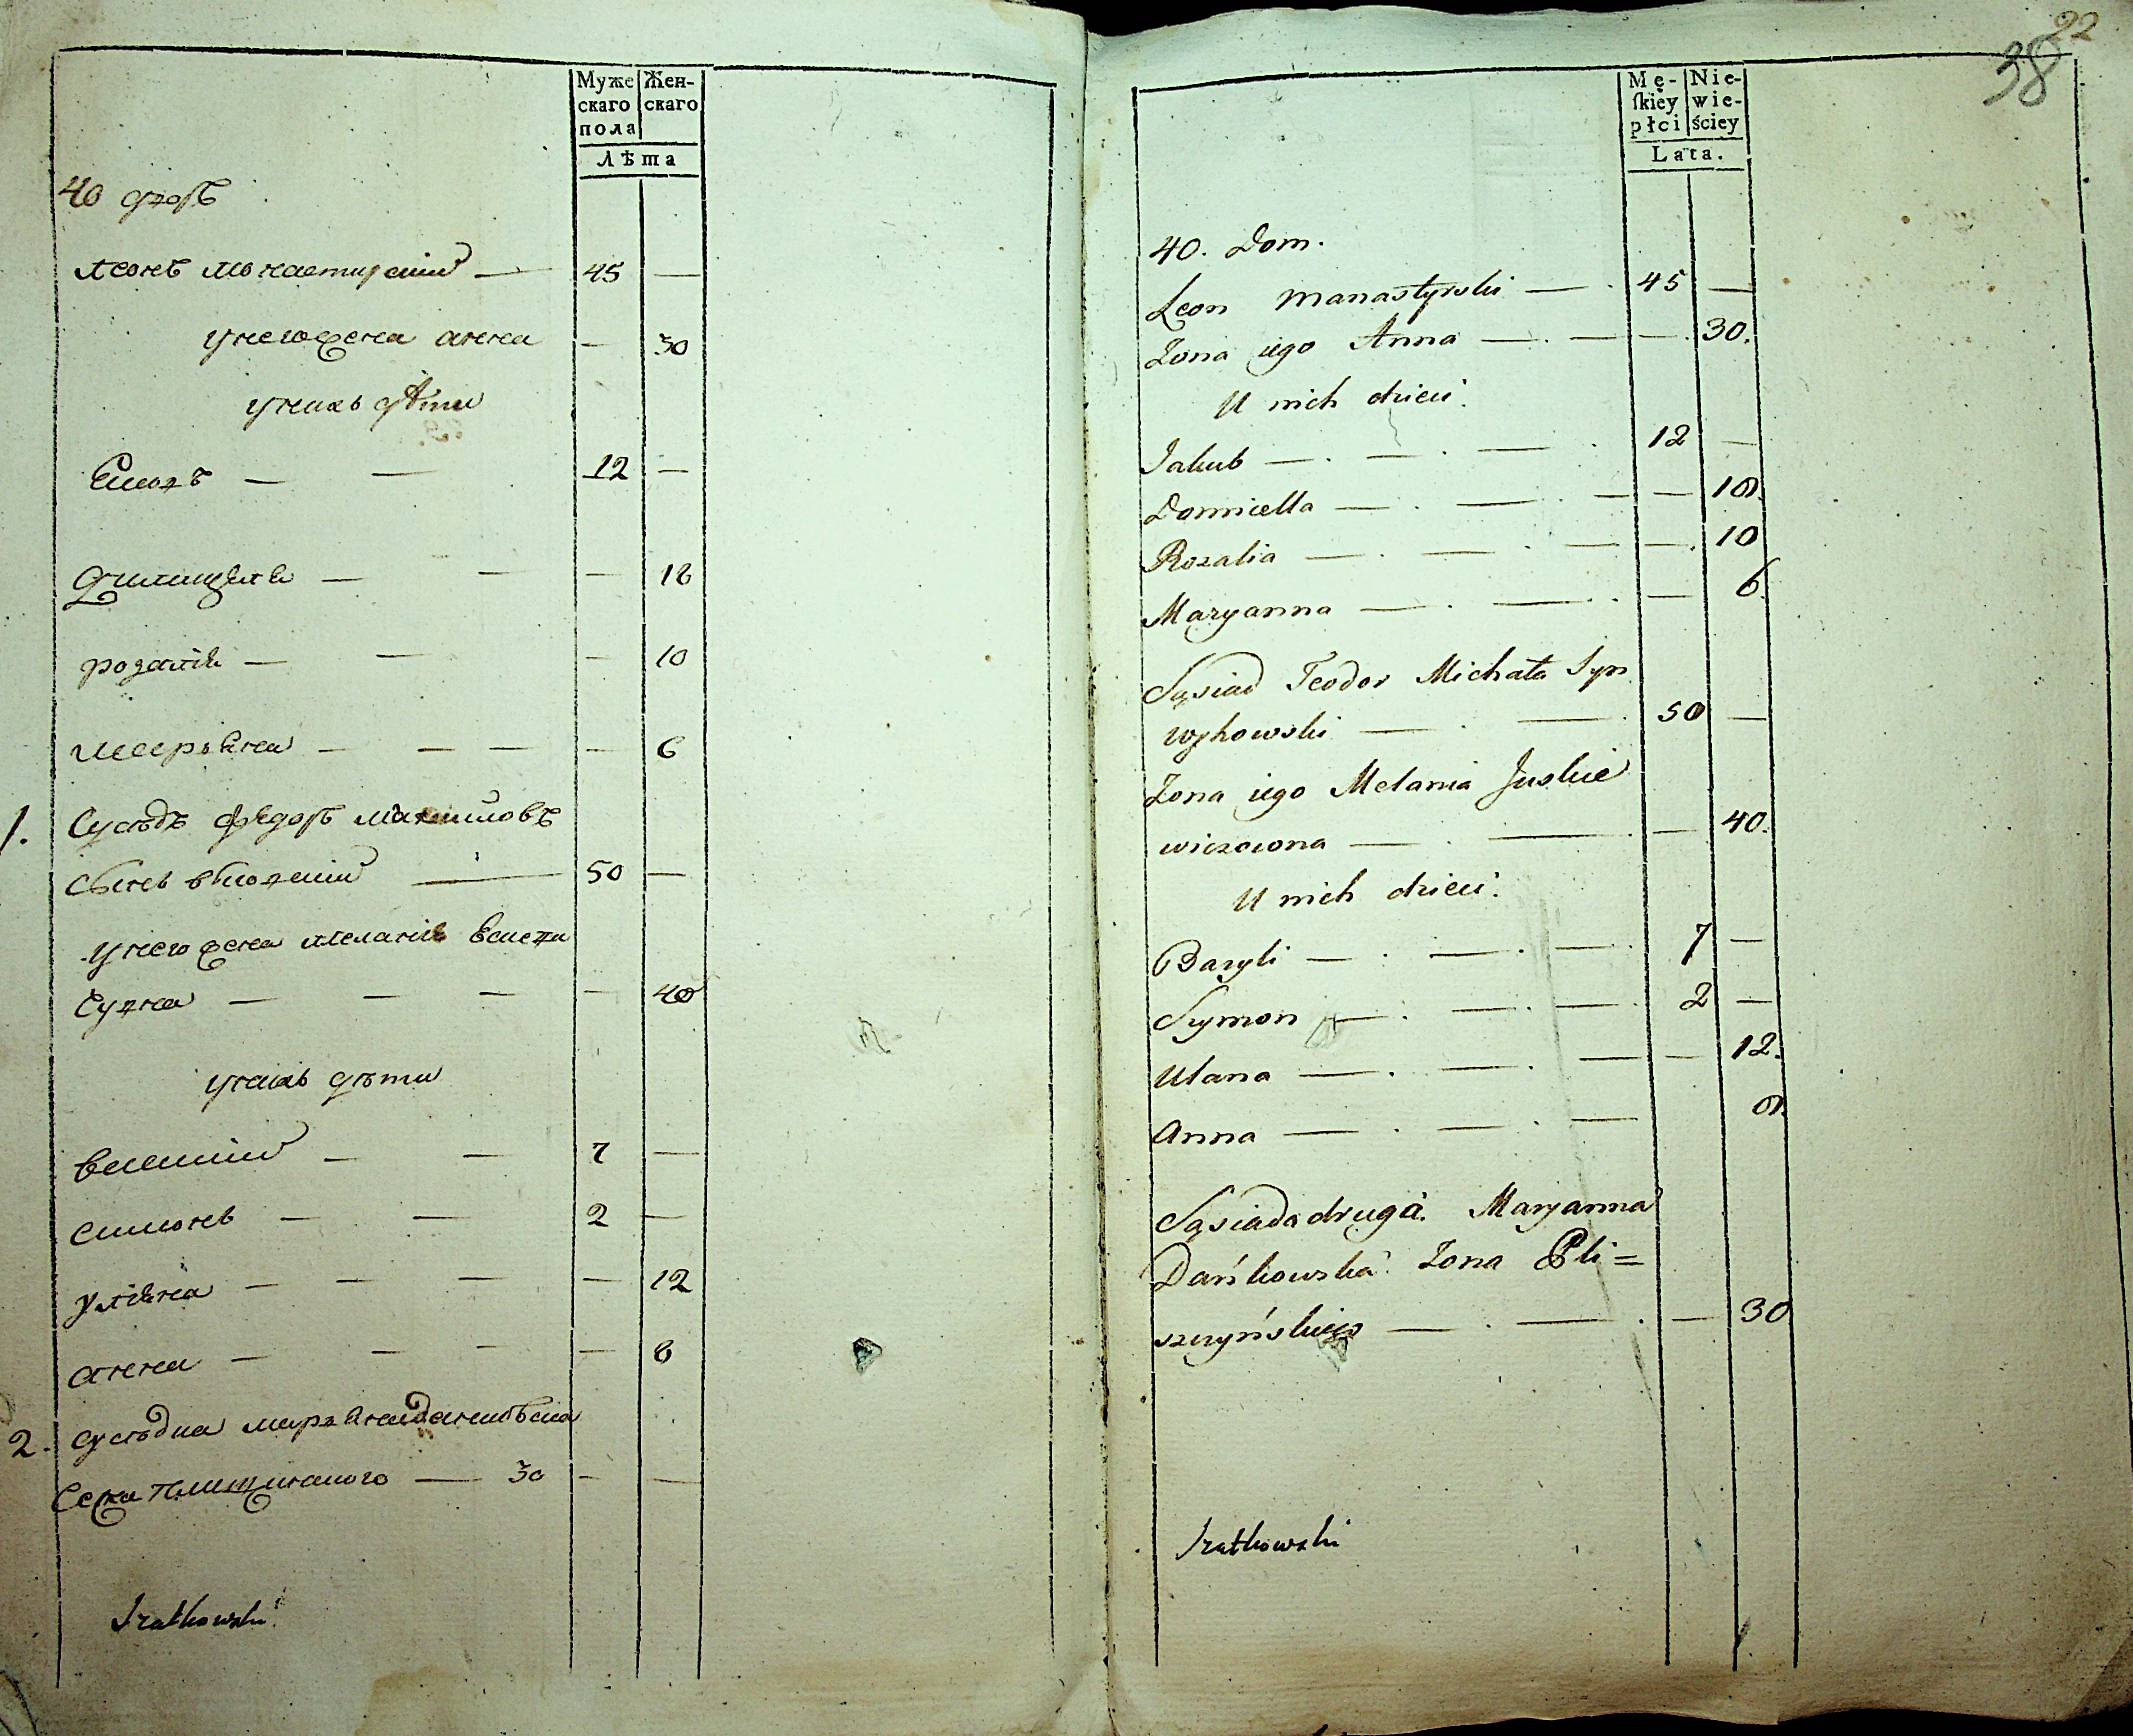 Муже
скаго
пола
Жен-
скаго
Лѣта
40 дворъ
Леонъ монастирскиⷨ — 45 —
У него жена анна — 30
У нихъ дѣти
12 —
— 18
розалія — — — 10
маріяна — — — — 6
1. Сусѣдъ Федоръ михайловъ
сынъ — 50 —
У него жена меланія
— — — — 40
У нихъ дѣти
василий — — 7 —
симонъ — — 2 —
уліяна — — — — 12
анна — — — — 8
2. сусѣдка
— 30 — —
22
38
Mę-
skiéy
płci
Nie-
wie-
ściey
Lata.
40. Dom.
Leon Manastyrski — 45 —
Zona iego Anna — — — 30.
U nich dzieci.
Jakub — — — 12 —
Domicella — — — — 18.
Rozalia — — — — 10
Maryanna — — — 6.
Sąsiad Teodor Michała Syn
Wyhowski — — 50 —
Zona iego Melania Juskie
wiczowna — — — 40.
U nich dzieci.
Bazyli — — — 7 —
Szymon — — — 2 —
Ulana — — — — 12.
Anna — — — 8.
Sąsiada druga. Maryanna
Dańkowska Zona Pli=
szczyńskiego — — — 30